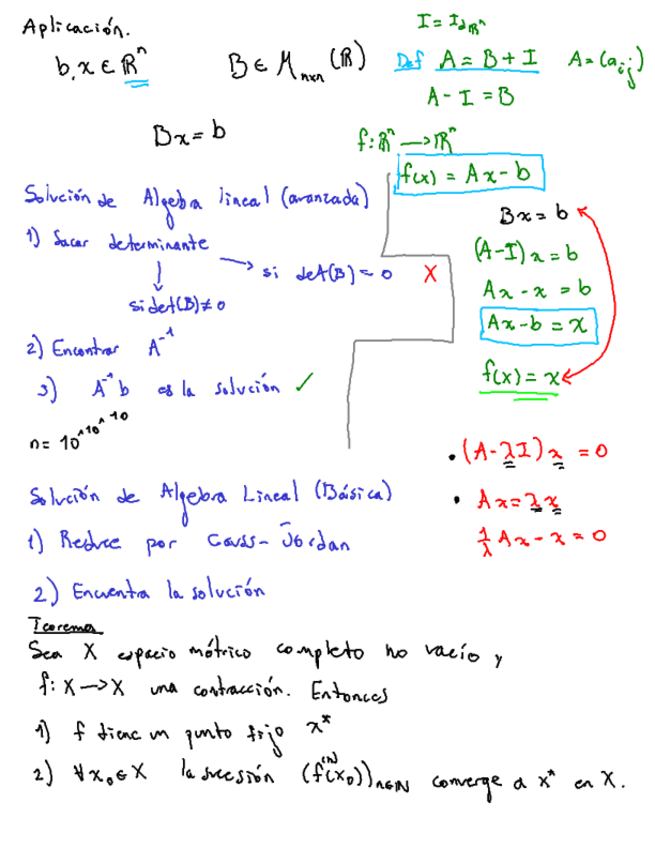 Aplicación.
I = Id_ℝⁿ
b, x ∈ ℝⁿ
B ∈ M_{n×n}(ℝ)
Def A = B + I
A = (a_{ij})
A - I = B
Bx = b
f: ℝⁿ → ℝⁿ
f(x) = Ax - b
Bx = b
(A - I)x = b
Ax - x = b
Ax - b = x
f(x) = x
Solución de Algebra lineal (avanzada)
1) Sacar determinante
↓ → si det(B) = 0 X
si det(B) ≠ 0
2) Encontrar A⁻¹
3) A⁻¹b es la solución ✓
n = 10^10^10^10
• (A - λI)x = 0
• Ax = λx
1/λ Ax - x = 0
Solución de Algebra Lineal (Básica)
1) Reduce por Gauss-Jordan
2) Encuentra la solución
Teorema
Sea X espacio métrico completo no vacío y
f: X → X una contracción. Entonces
1) f tiene un punto fijo x*
2) ∀x₀ ∈ X la sucesión (f⁽ⁿ⁾(x₀))_{n∈ℕ} converge a x* en X.